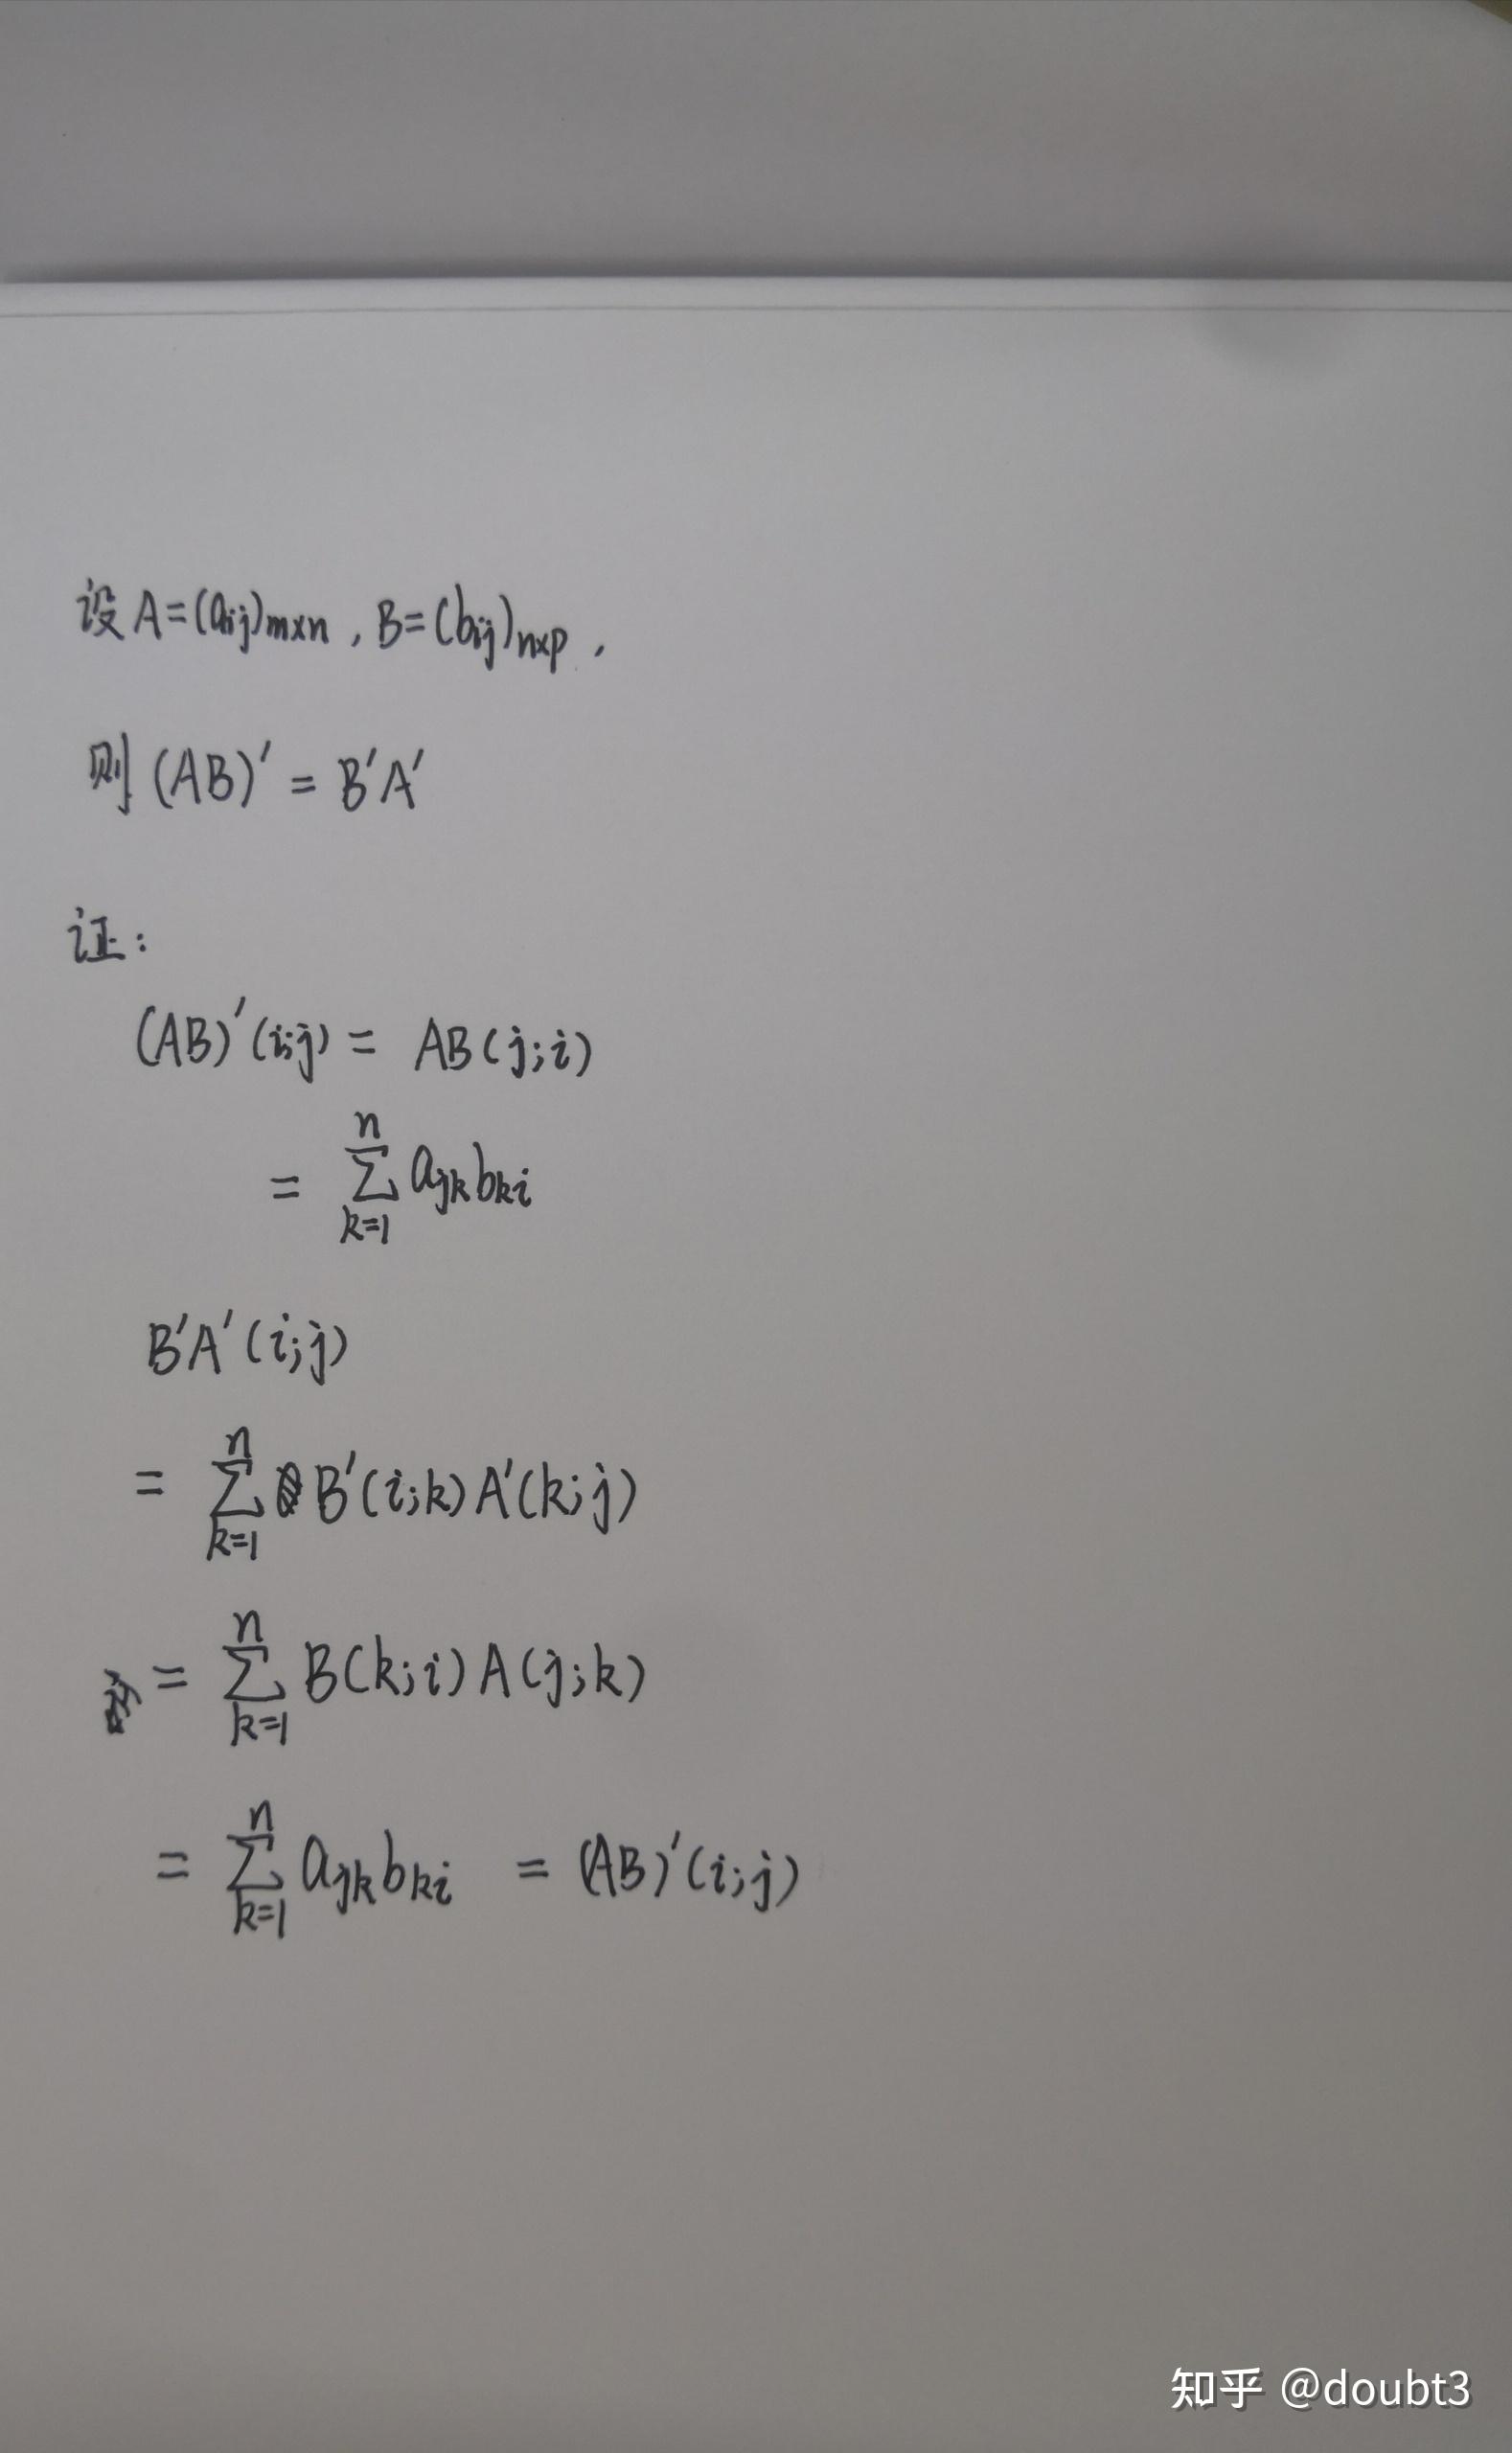 设 A=(aij)m×n , B=(bij)n×p ,
则 (AB)′ = B′A′
证:
(AB)′(i;j) = AB(j;i)
= ∑_{k=1}^{n} ajk bki
B′A′(i;j)
= ∑_{k=1}^{n} B′(i;k)A′(k;j)
= ∑_{k=1}^{n} B(k;i)A(j;k)
= ∑_{k=1}^{n} ajk bki = (AB)′(i;j)
知乎 @doubt3